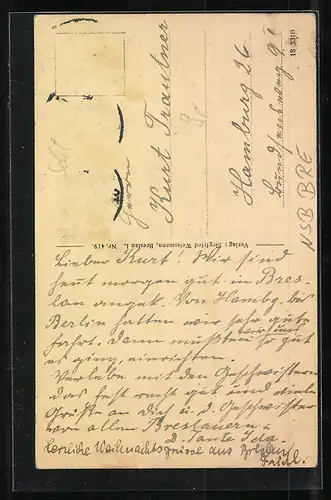 Herrn
Kurt Trautner
Hamburg 26
18 3310
Verlag: Siegfried Weissmann, Breslau I. Nr. 419.
NSB BRE
Lieber Kurt! Wir sind
heut morgen gut in Bres-
lau angek. Von Hambg. bis
Berlin hatten wir sehr gute
Fahrt. Dann mußten wir uns so gut
es ging, einrichten.
Verlebe mit den Geschwistern
das Fest recht gut und viele
Grüße an Dich u. d. Geschwister
von allen Breslauern.
D. Tante Ida.
Herzliche Weihnachtsgrüsse aus Breslau